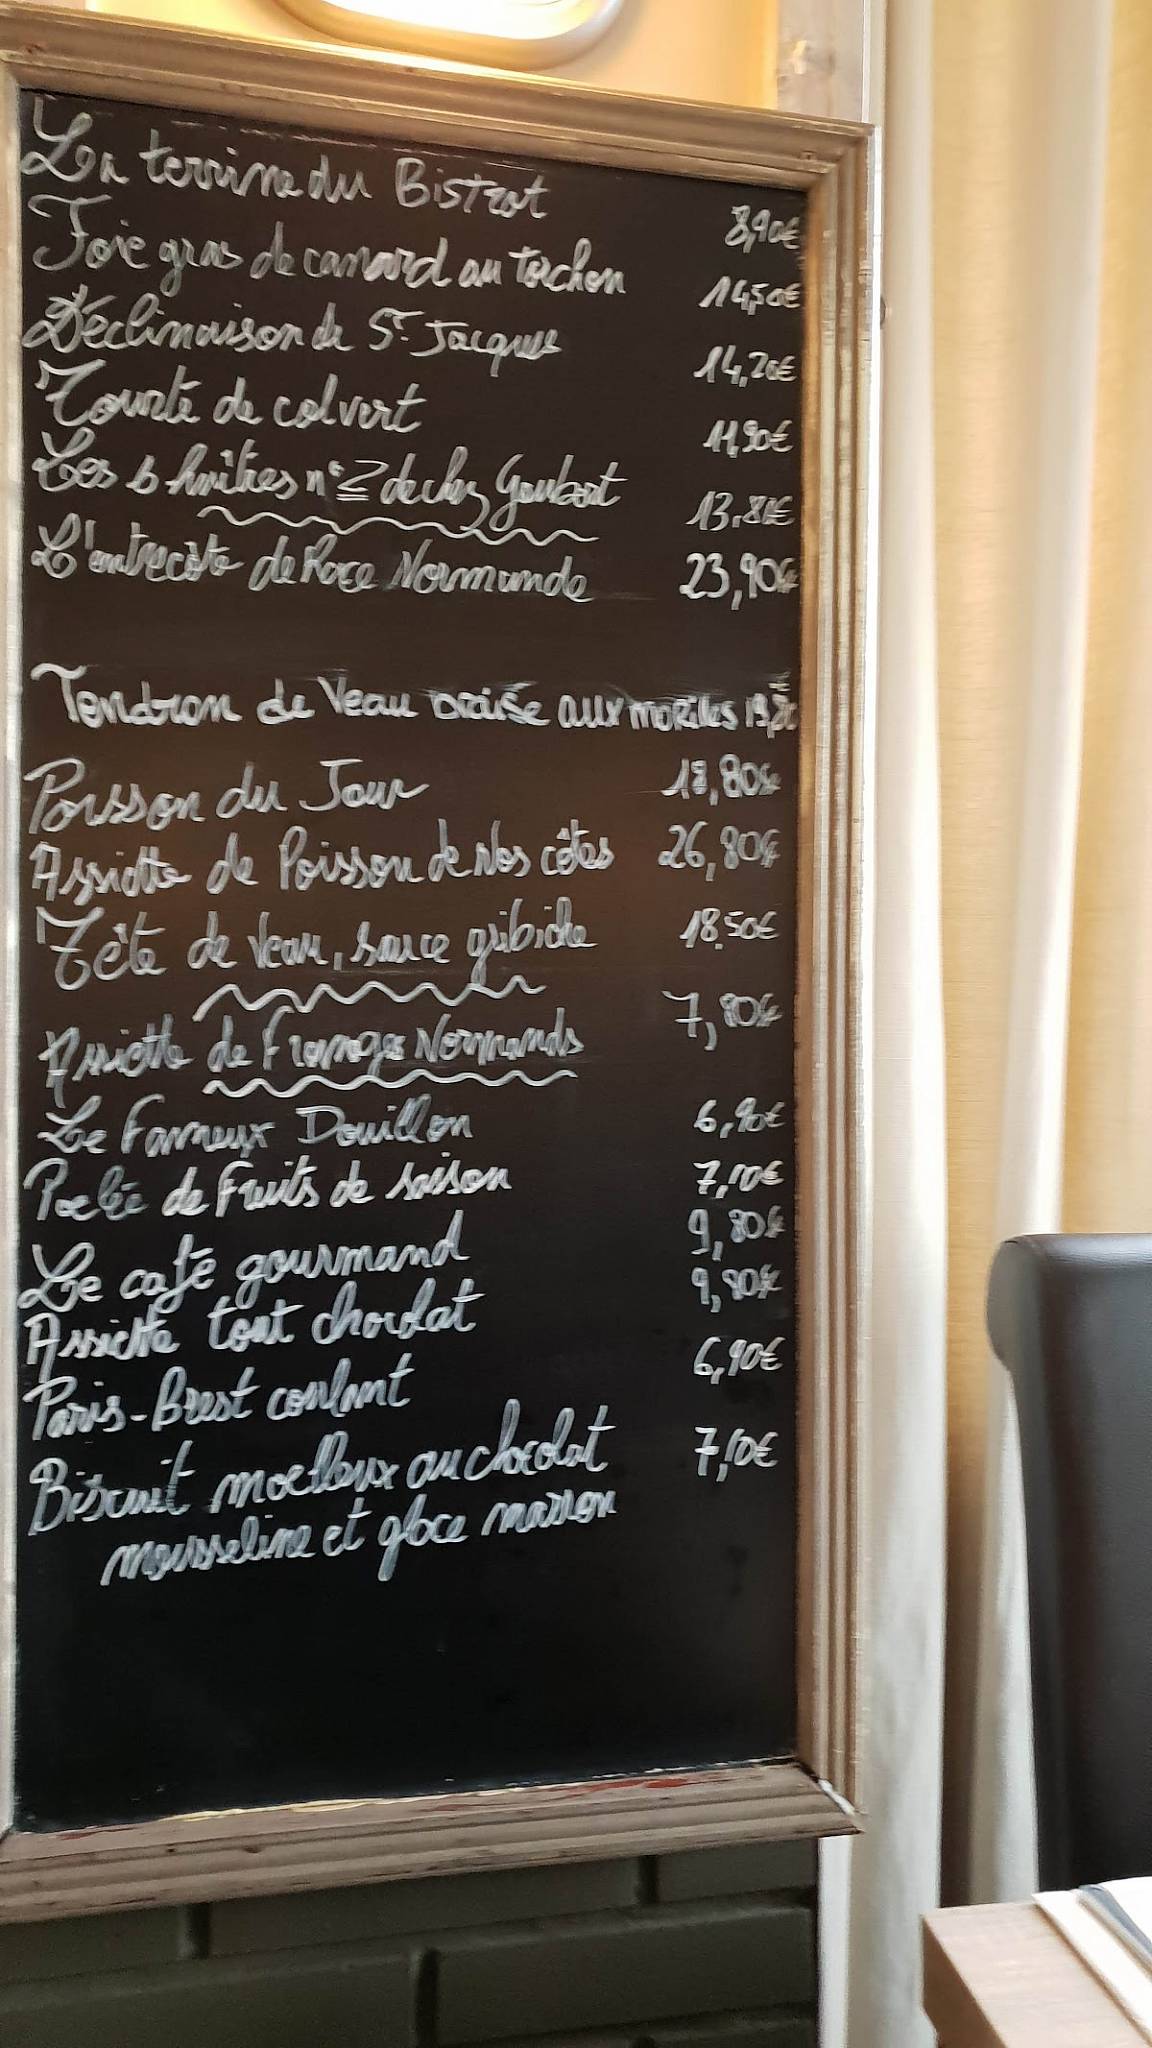 La terrine du Bistrot 8,90€
Foie gras de canard au torchon 14,50€
Déclinaison de St Jacques 14,20€
Tourte de colvert 11,90€
Les 6 huîtres n°2 de chez Goubert 13,80€
L'entrecôte de Race Normande 23,90€
Tendron de Veau braisé aux morilles
Poisson du Jour 18,80€
Assiette de Poisson de Nos côtes 26,80€
Tête de veau, sauce gribiche 18.50€
Assiette de Fromages Normands 7,80€
Le Fameux Douillon 6,90€
Poelée de fruits de saison 7,10€
Le café gourmand 9,80€
Assiette tout chocolat 9,80€
Paris-Brest coulant 6,90€
Biscuit moelleux au chocolat 7,10€
mousseline et glace marron